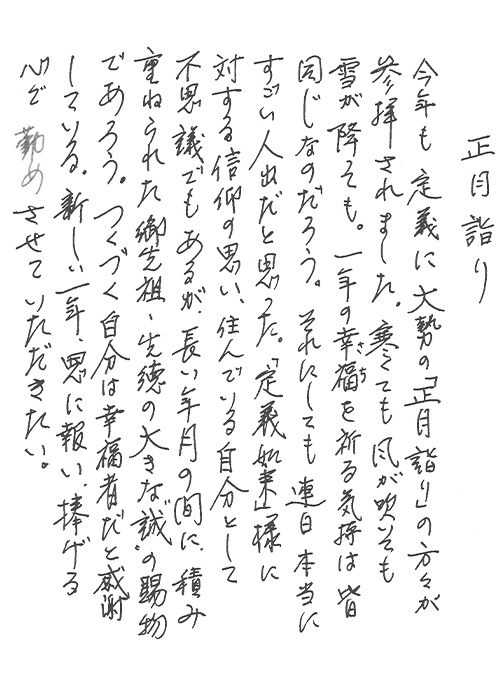 正月詣り
今年も定義に大勢の「正月詣り」の方々が
参拝されました。寒くても風が吹いても
雪が降っても。一年の幸福を祈る気持は皆
同じなのだろう。それにしても連日本当に
すごい人出だと思った。「定義如来」様に
対する信仰の思い、住んでいる自分として
不思議でもあるが、長い年月の間に、積み
重ねられた御先祖、先徳の大きな“誠”の賜物
であろう。つくづく自分は幸福者だと感謝
している。新しい一年、恩に報い、捧げる
心で勤めさせていただきたい。